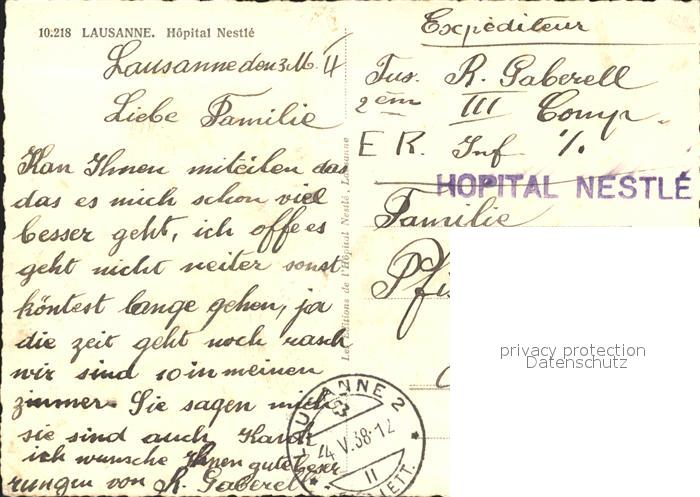 10.218 LAUSANNE. Hôpital Nestlé
Lausanne den 3 M. 
Liebe Familie
Kan Ihnen miteilen das
das es mich schon viel
besser geht, ich offe es
geht nicht weiter sonst
köntest lange gehen, ja
die zeit geht noch rasch
wir sind 10 in meinen
zimmer. Sie sagen mich
sie sind auch
ich wunsche Ihnen gute beser
rungen von R. Gaberell
Les Editions de l'Hôpital Nestlé, Lausanne
Expéditeur
Fus. R. Gaberell
2èm III Comp.
E R. Inf 1/.
HOPITAL NESTLÉ
Familie
Pfi
LAUSANNE 2
V.38-12
II
LETT.
privacy protection
Datenschutz